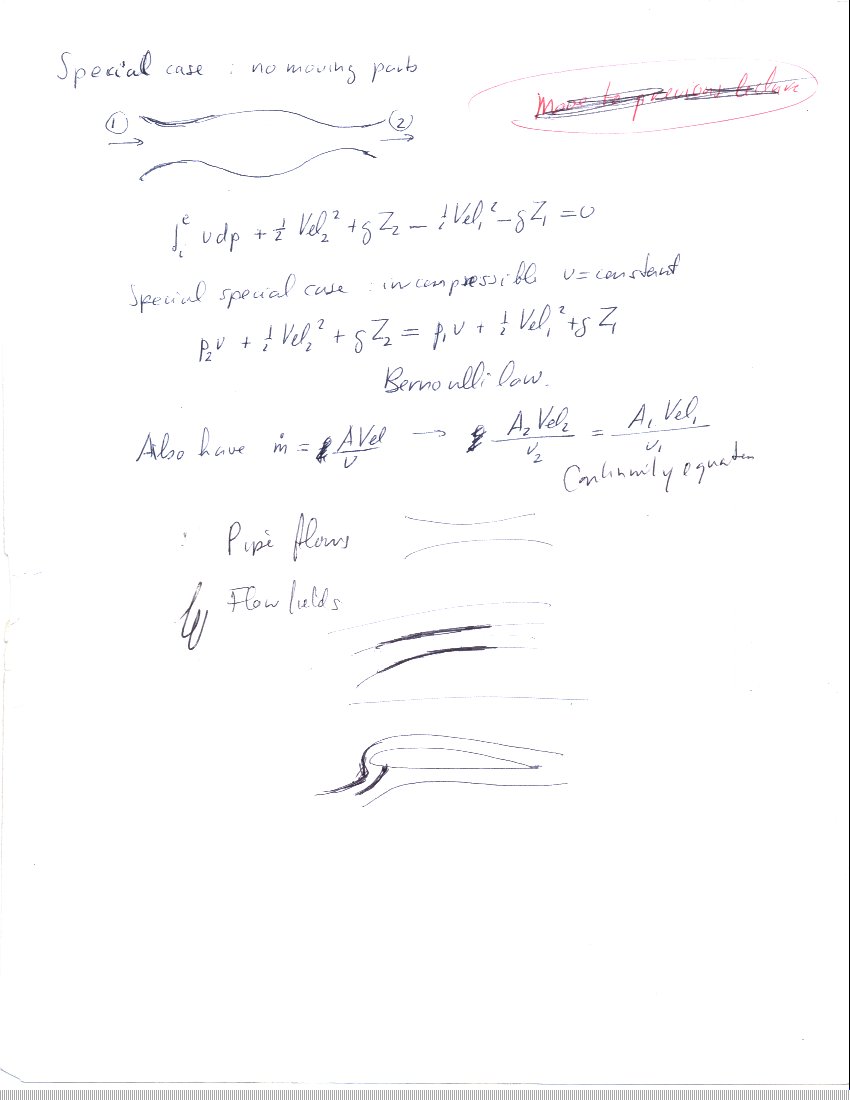 Special case : no moving parts
Move to previous lecture
① ②
∫ᵢᵉ v dp + ½ Vel₂² + gZ₂ − ½ Vel₁² − gZ₁ = 0
Special special case : incompressible v = constant
p₂v + ½ Vel₂² + gZ₂ = p₁v + ½ Vel₁² + gZ₁
Bernoulli law.
Also have ṁ = AVel/v → A₂ Vel₂/v₂ = A₁ Vel₁/v₁
Continuity equation
: Pipe flows
Flow fields